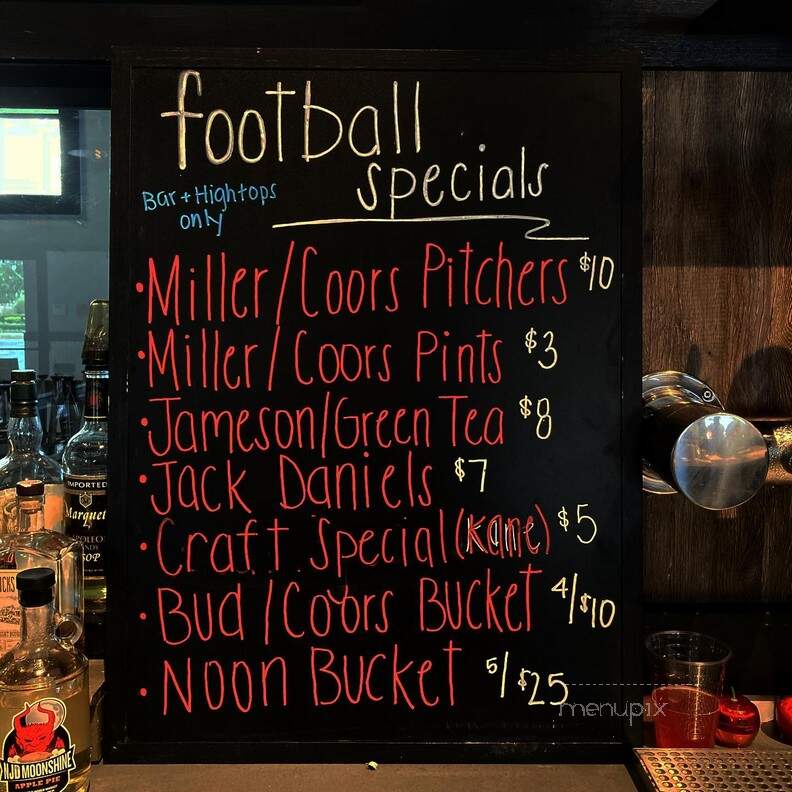 football
specials
Bar + Hightops
only
• Miller/Coors Pitchers $10
• Miller/Coors Pints $3
• Jameson/Green Tea $8
• Jack Daniels $7
• Craft Special (Kane) $5
• Bud/Coors Bucket 4/$10
• Noon Bucket 5/$25
menupix
IMPORTED
Marquet
VSOP
NJD MOONSHINE
APPLE PIE